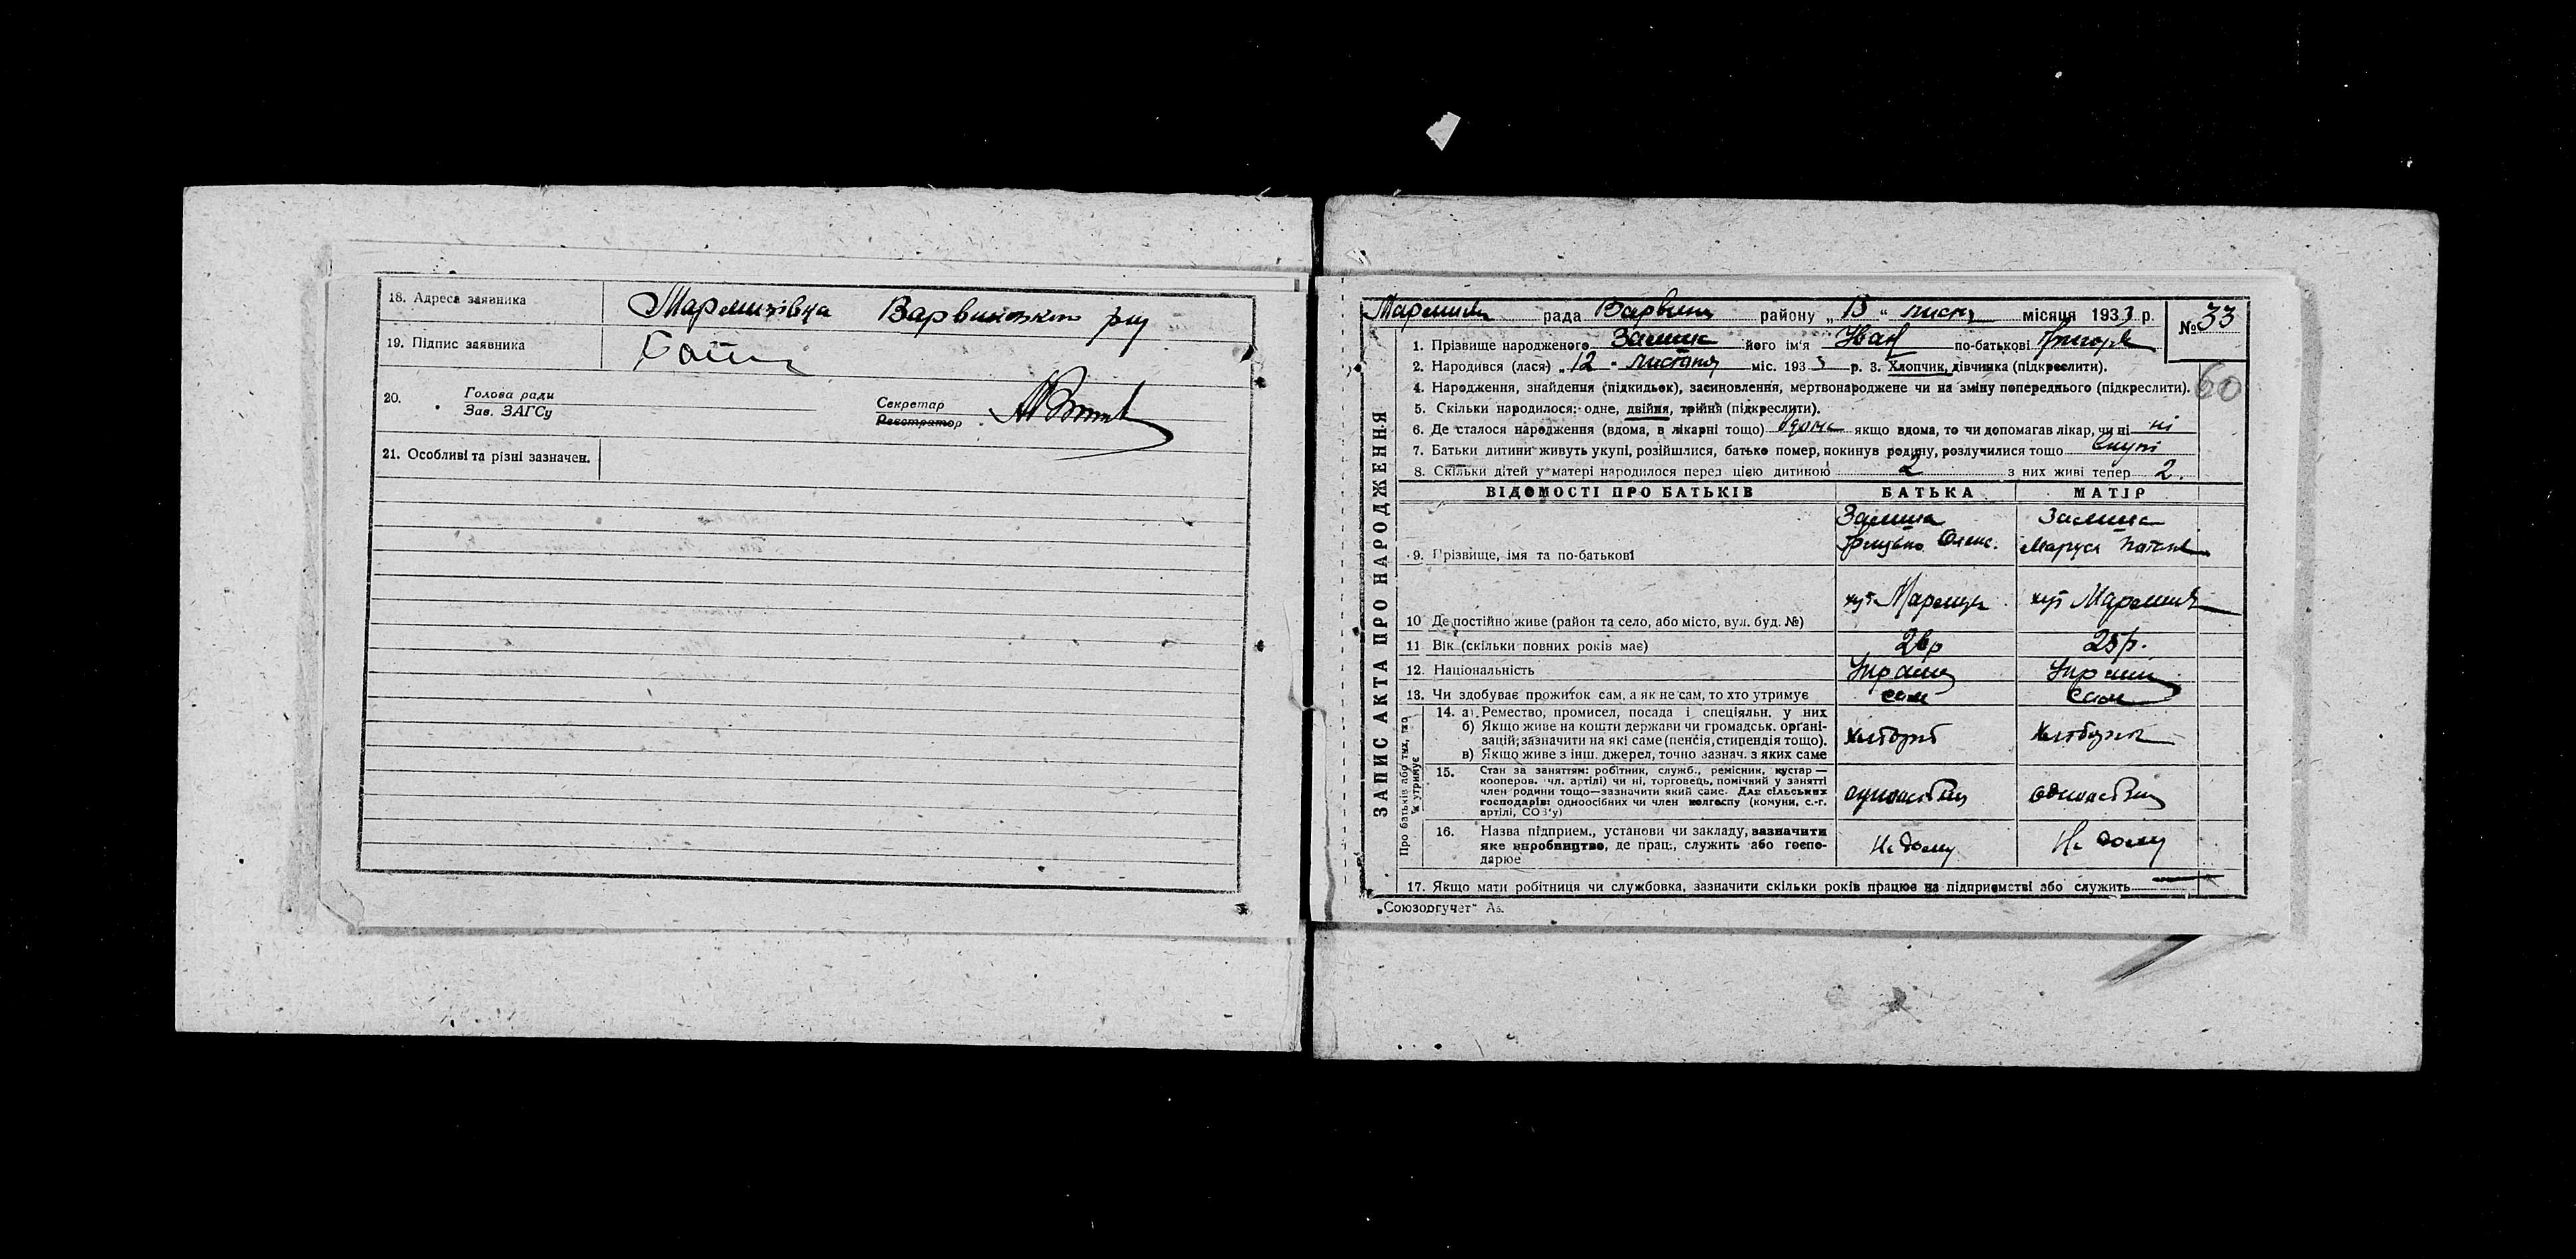 18. Адреса заявника Мармизівка Варвинського р-ну
19. Підпис заявника
20. Голова ради
Зав. ЗАГСу
Секретар
Реєстратор
21. Особливі та різні зазначен.
ЗАПИС АКТА ПРО НАРОДЖЕННЯ
рада району „13“ листоп місяця 1933 р. № 33
1. Прізвище народженого його ім'я Іван по-батькові Григоров
60
2. Народився (лася) „12“ листопад міс. 1933 р. 3. Хлопчик, дівчинка (підкреслити).
4. Народження, знайдення (підкидьок), засиновлення, мертвонароджене чи на зміну попереднього (підкреслити).
5. Скільки народилося: одне, двійня, трійня (підкреслити).
6. Де сталося народження (вдома, в лікарні тощо) вдома якщо вдома, то чи допомагав лікар, чи ні ні
7. Батьки дитини живуть укупі, розійшлися, батько помер, покинув родину, розлучилися тощо вкупі
8. Скільки дітей у матері народилося перед цією дитиною 2 з них живі тепер 2.
ВІДОМОСТІ ПРО БАТЬКІВ БАТЬКА МАТІР
9. Прізвище, імя та по-батькові Грицько Олекс. Маруся
10 Де постійно живе (район та село, або місто, вул. буд. №) хут хут
11 Вік (скільки повних років має) 26р 25р.
12. Національність
13. Чи здобуває прожиток сам, а як не сам, то хто утримує сам сам
Про батьків або тих, хто їх утримує
14. а) Ремество, промисел, посада і спеціяльн. у них
б) Якщо живе на кошти держави чи громадськ. органі-
зацій; зазначити на які саме (пенсія, стипендія тощо).
в) Якщо живе з інш. джерел, точно зазнач. з яких саме
15. Стан за заняттям: робітник, служб., ремісник, кустар —
кооперов. чл. артілі) чи ні, торговець, помічний у занятті
член родини тощо—зазначити який саме. Для сільських
господарів: одноосібних чи член колгоспу (комуни, с.-г.
артілі, СОЗ'у)
16. Назва підприєм., установи чи закладу, зазначити На дому На дому
яке виробництво, де прац., служить або госпо-
дарює
17. Якщо мати робітниця чи службовка, зазначити скільки років працює на підприємстві або служить —
„Союзоргучет“